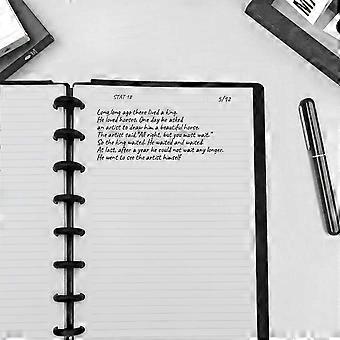 STAT-18 5/92
Long long ago there lived a king.
He loved horses. One day he asked
an artist to draw him a beautiful horse.
The artist said,"All right, but you must wait."
So the king waited. He waited and waited.
At last, after a year he could not wait any longer.
He went to see the artist himself
M